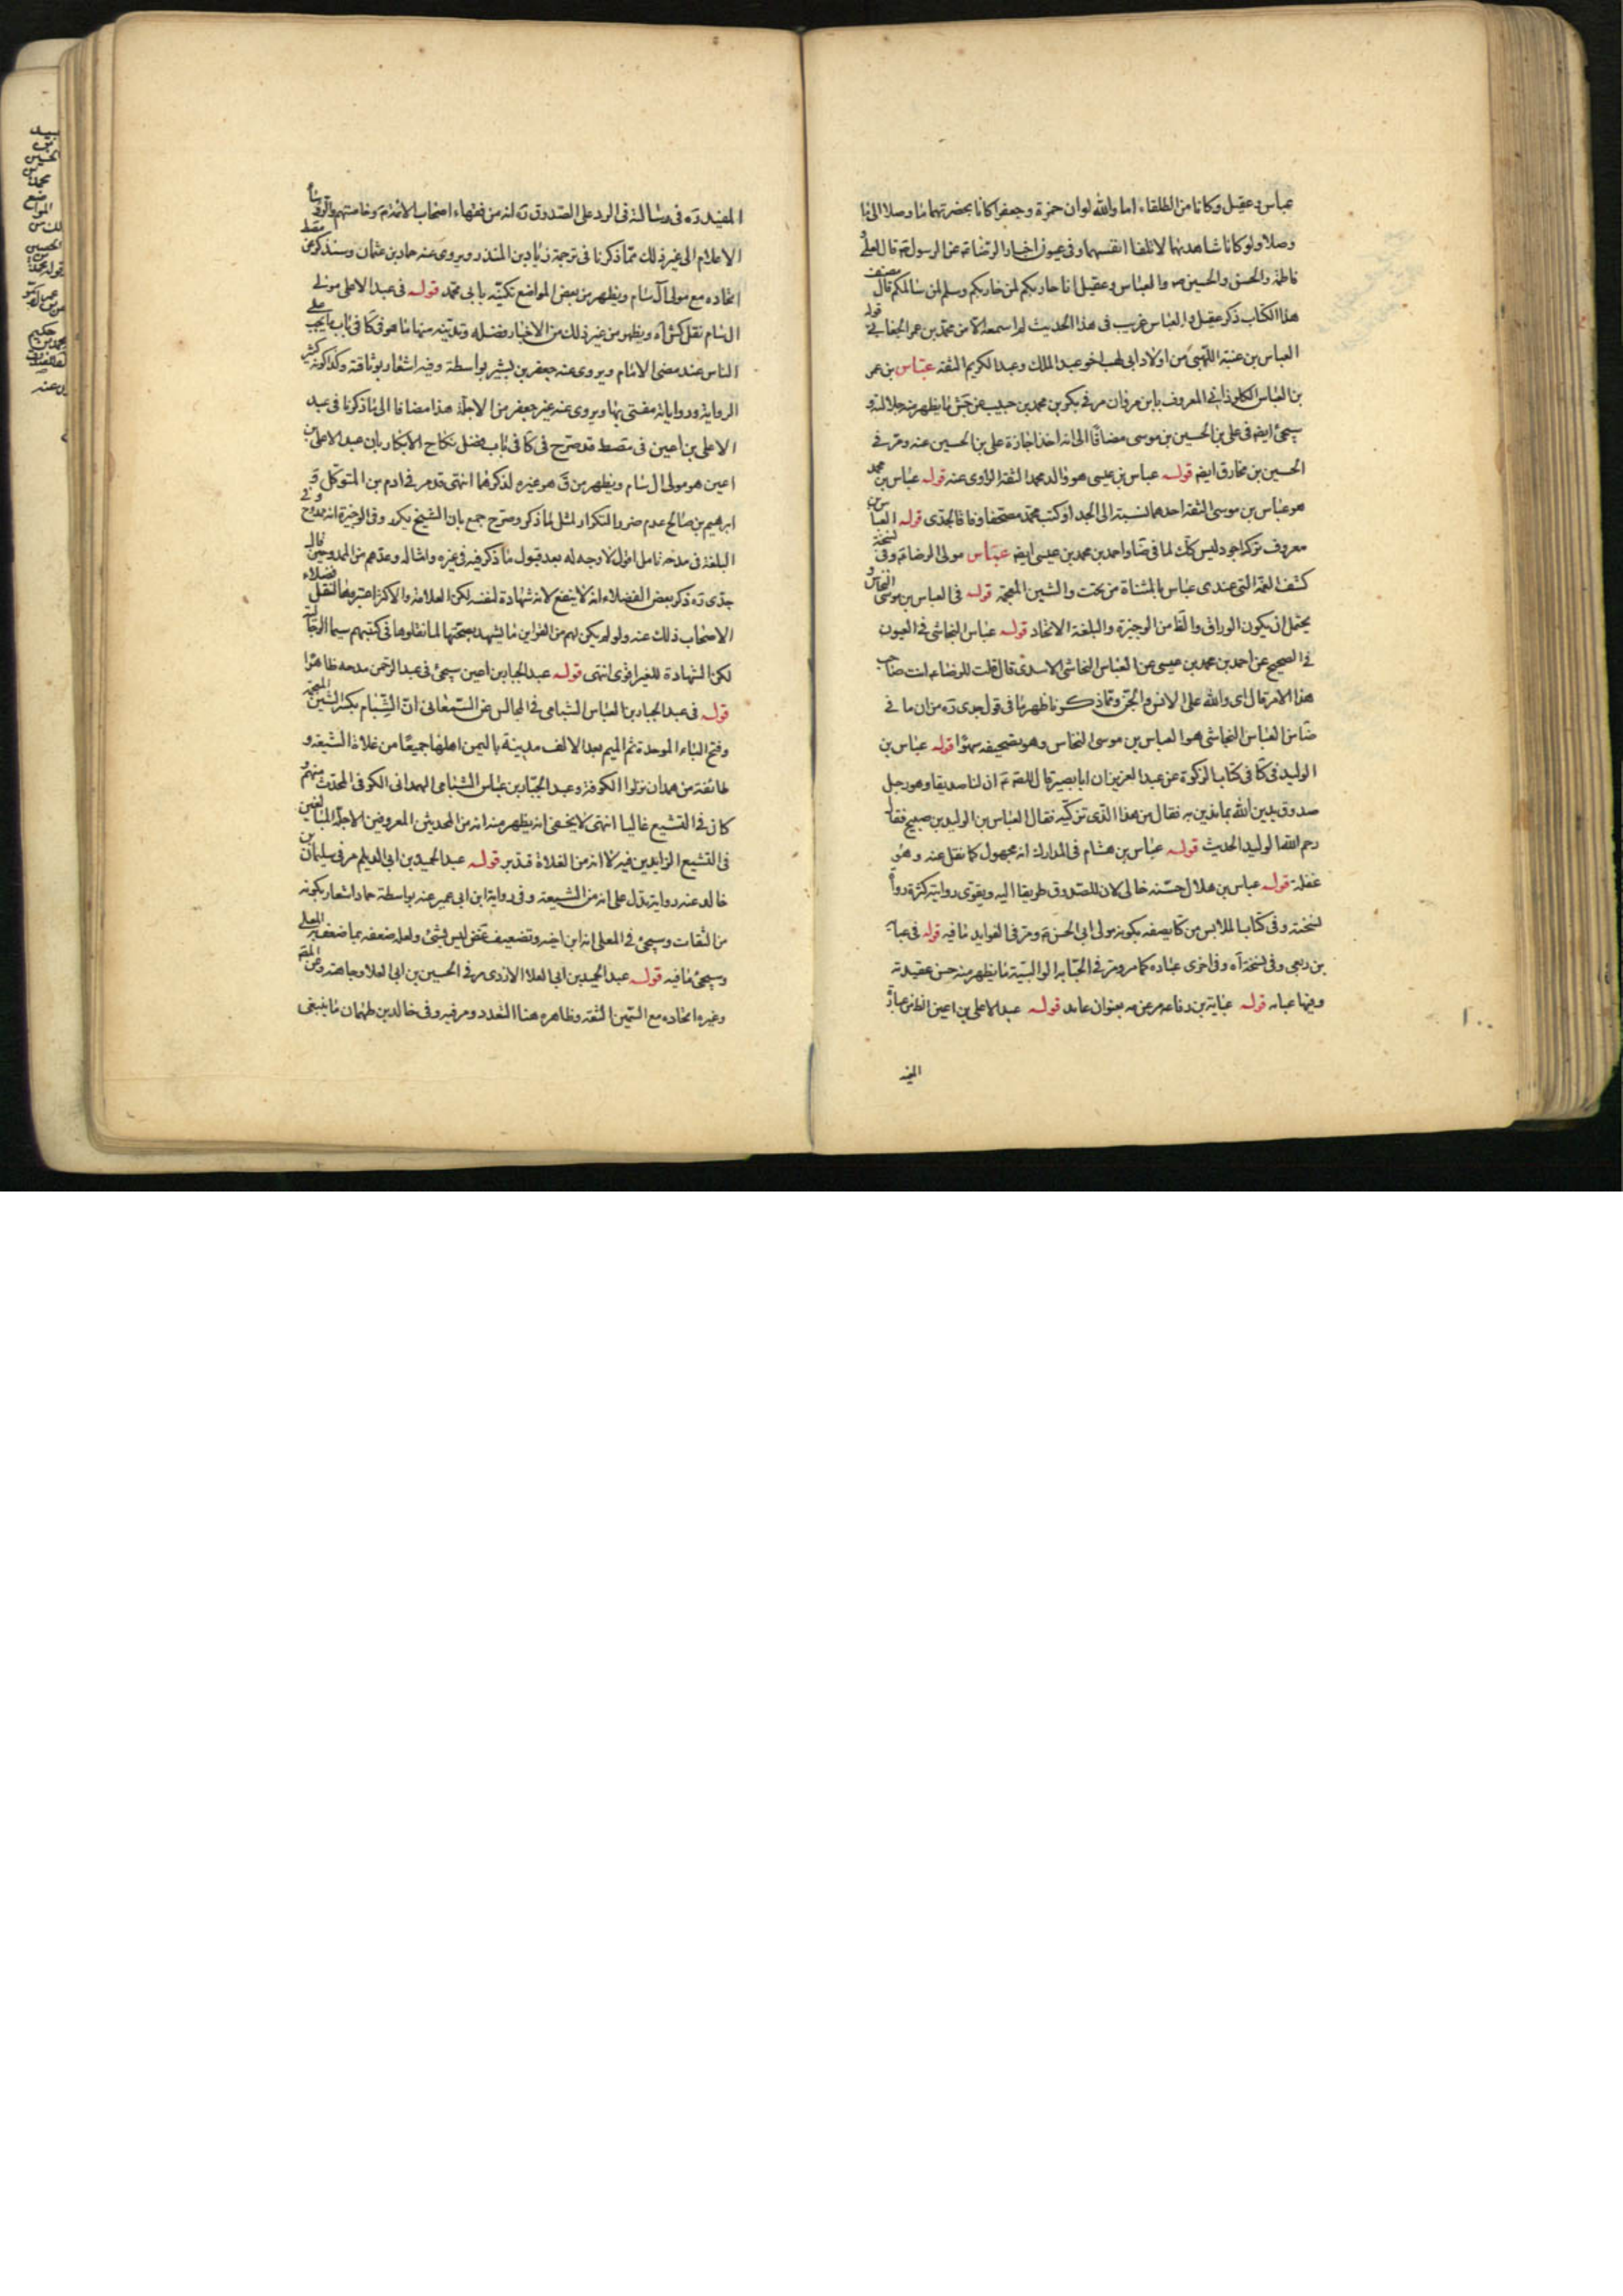 عباس وعقيل وكانا من الطلقاء اما والله لو ان حمزة وجعفرا كانا بحضرتهما ما وصلا الى ما
وصلا ولو كانا شاهديهما لاتلفا انفسهما وفى عيون اخبار الرضا عن الرسول قال لعلى و
فاطمة والحسن والحسين والعباس وعقيل انا حارب لمن حاربكم وسلم لمن سالمكم قال مصنف
هذا الكتاب ذكر عقيل والعباس غريب فى هذا الحديث لم اسمعه الا من محمد بن عمر الجعابى قوله
العباس بن عتبة اللهبى من اولاد ابى لهب اخو عبد الملك وعبد الكريم الثقة عباس بن عمر
بن العباس الكلوذانى المعروف بابن مروان مر فى بكر بن محمد بن حبيب عن جش ما يظهر منه جلالته و
سيجئ ايضا فى على بن الحسين بن موسى مضافا الى انه اخذ اجازة على بن الحسين عنه ومر فى
الحسين بن مخارق ايضا قوله عباس بن عيسى هو والد محمد الثقة الراوى عنه قوله عباس بن محمد
هو عباس بن موسى الثقة احدهما نسبة الى الجد او كتب محمد مصحفا وفاقا لجدى قوله العباس بن
معروف تركه اجود ليس كك لما فى ضا واحمد بن محمد بن عيسى ايضا عباس مولى الرضا وفى نسخة
كشف الغمة التى عندى عياش بالمثناة من تحت والشين المعجمة قوله فى العباس بن موسى النخاس و
يحتمل ان يكون الوراق والظ من الوجيزة والبلغة الاتحاد قوله عباس النجاشى فى العيون
فى الصحيح عن احمد بن محمد بن عيسى عن العباس النجاشى الاسدى قال قلت للرضا انت صاحب
هذا الامر قال اى والله على الانس والجن ومما ذكرنا ظهر ما فى قول جدى ره من ان ما فى
ضا من العباس النجاشى هو العباس بن موسى النخاس وهو تصحيفه سهوا قوله عباس بن
الوليد فى كا فى كتاب الزكوة عن عبد العزيز ان ابا بصير قال للصادق ان لنا صديقا وهو رجل
صدوق يدين الله بما ندين به فقال من هذا الذى تزكيه فقال العباس بن الوليد بن صبيح فقال
رحم الله الوليد الحديث قوله عباس بن هشام فى المدارك انه مجهول كما نقل عنه وهو
غفلة قوله عباس بن هلال حسنه خالى لان للصدوق طريقا اليه ويقوى روايته كثرة رواة
نسخته وفى كتاب الملابس من كا يصفه بكونه مولى ابى الحسن ومر فى الفوايد ما فيه قوله فى عباية
بن ربعى وفى نسخة اه وفى اخرى عباده كما مر ومر فى الحبابه الوالبية ما يظهر منه حسن عقيدته
وفيها عبايه قوله عباية بن رفاعه مر عن به بعنوان عابد قوله عبد الاعلى بن اعين الظ من عبارة
المفيد
المفيد ره فى رسالته فى الرد على الصدوق ره انه من فقهاء اصحاب الائمة وخاصتهم والرؤساء
الاعلام الى غير ذلك مما ذكرنا فى ترجمة زياد بن المنذر ويروى عنه حماد بن عثمان وسنذكر عن مقط
اتحاده مع مولى آل سام ويظهر من بعض المواضع تكنيه بابى محمد قوله فى عبد الاعلى مولى
ال سام نقل كش اه ويظهر من غير ذلك من الاخبار فضله وتدينه منها ما هو فى كا فى باب ما يجب على
الناس عند مضى الامام ويروى عنه جعفر بن بشير بواسطة وفيه اشعار بوثاقته وكذا كونه كثير
الرواية ورواياته مفتى بها ويروى عنه غير جعفر من الاجلة هذا مضافا الى ما ذكرنا فى عبد
الاعلى بن اعين فى مقصط قد صرح فى كا فى باب فضل نكاح الابكار بان عبد الاعلى بن
اعين هو مولى ال سام ويظهر من ق هو غيره لذكرهما انتهى قد مر فى ادم بن المتوكل و
ابرهيم بن صالح عدم ضرر التكرار لمثل لما ذكر وصرح جمع بان الشيخ يكرر وفى الوجيزة انه ممدوح وفى
البلغة فى مدحه تامل اقول لا وجه له بعد قبول ما ذكر فيه فى غيره وامثاله وعدهم من الممدوحين قال
جدى ره ذكر بعض الفضلاء انه لا ينفع لانه شهادة لنفسه لكن العلامة والاكثر اعتبروها لنقل فضلاء
الاصحاب ذلك عنه ولو لم يكن لهم من القراين ما يشهد بصحتها لما نقلوها فى كتبهم سيما الرجالية
لكن الشهادة للغير اقوى انتهى قوله عبد الجبار بن اعين سيجئ فى عبد الرحمن مدحه ظاهرا
قوله فى عبد الجبار بن العباس الشبامى فى المجالس عن السمعانى ان الشبام بكسر الشين المعجمة
وفتح الباء الموحدة ثم الميم بعد الالف مدينة باليمن اهلها جميعا من غلاة الشيعة و
طائفة من همدان نزلوا الكوفة وعبد الجبار بن عباس الشبامى الهمدانى الكوفى المحدث منهم و
كان فى التشيع غاليا انتهى لا يخفى انه يظهر منه انه من المحدثين المعروفين الاجلة المبالغين
فى التشيع الزايدين فيه لا انه من الغلاة فتدبر قوله عبد الحميد بن ابى الديلم مر فى سليمان بن
خالد عنه رواية تدل على انه من الشيعة وفى رواية ابن ابى عمير عنه بواسطة حماد اشعار بكونه
من الثقات وسيجئ فى المعلى انه ابن اخيه وتضعيف غض ليس بشئ ولعله ضعفه بما ضعف به المعلى
وسيجئ ما فيه قوله عبد الحميد بن ابى العلا الازدى مر فى الحسين بن ابى العلا وجاهته وعن
وغيره اتحاده مع السمين الثقة وظاهره هنا التعدد ومر فيه وفى خالد بن طهمان ما ينبغى